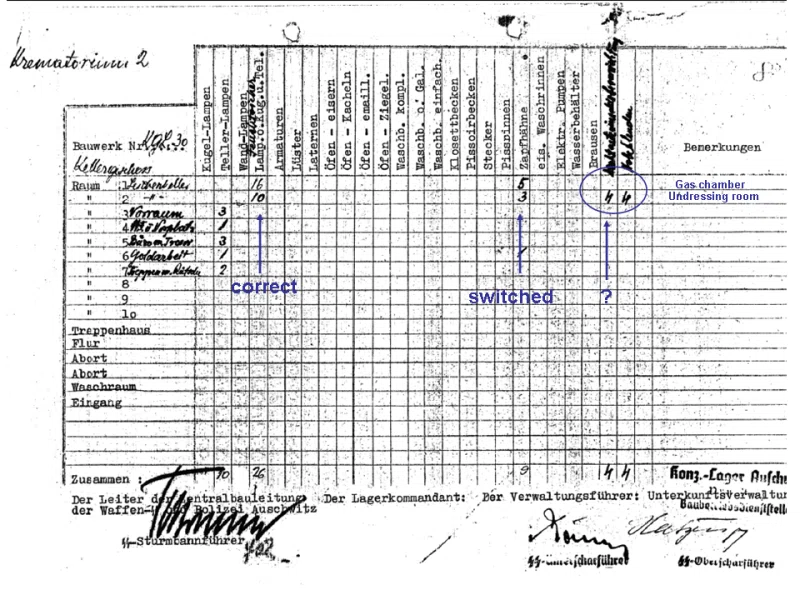 Krematorium 2
Bauwerk Nr. 30
Kellergeschoss
Kugel-Lampen
Teller-Lampen
Wand-Lampen
Lamp.o.Kug.u.Tel.
Armaturen
Lüster
Laternen
Öfen - eisern
Öfen - Kacheln
Öfen - emaill.
Öfen - Ziegel.
Waschb. kompl.
Waschb. o. Gal.
Waschb. einfach.
Klosettbecken
Pissoirbecken
Stecker
Pissrinnen
Zapfhähne
eis. Waschrinnen
Elektr. Pumpen
Wasserbehälter
Brausen
Bemerkungen
Raum 1 Leichenkeller 16 5 Gas chamber
" 2 -"- 10 3 4 4 Undressing room
" 3 Vorraum 3
" 4 1
" 5 Büro 3
" 6 Goldarbeit 1 1
" 7 2
" 8
" 9
" 10
correct
switched
?
Treppenhaus
Flur
Abort
Abort
Waschraum
Eingang
Zusammen : 10 26 9 4 4
Konz.-Lager
Der Leiter der Zentralbauleitung Der Lagerkommandant: Der Verwaltungsführer: Unterkunftsverwaltu
der Waffen-SS und Polizei Auschwitz
SS-Sturmbannführer
SS-Unterscharführer SS-Oberscharführer